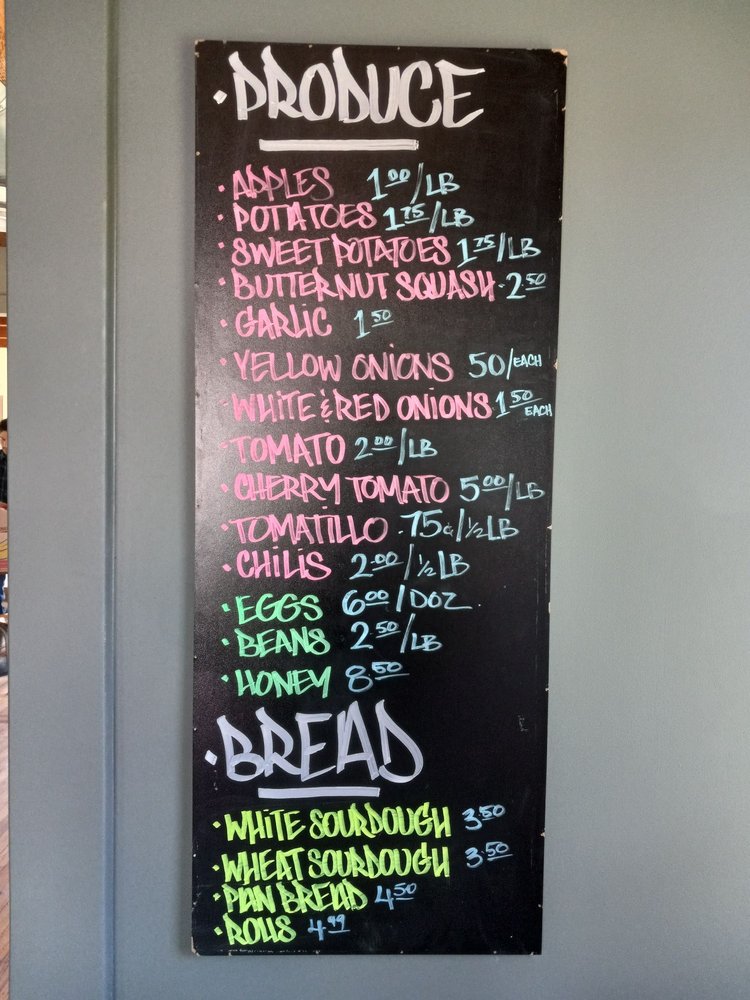 · PRODUCE
· APPLES 1.00/LB
· POTATOES 1.75/LB
· SWEET POTATOES 1.75/LB
· BUTTERNUT SQUASH · 2.50
· GARLIC 1.50
· YELLOW ONIONS 50/EACH
· WHITE & RED ONIONS · 1.50 EACH
· TOMATO 2.00/LB
· CHERRY TOMATO 5.00/LB
· TOMATILLO .75¢/½LB
· CHILIS 2.00/½LB
· EGGS 6.00/DOZ.
· BEANS 2.50/LB
· HONEY 8.50
· BREAD
· WHITE SOURDOUGH 3.50
· WHEAT SOURDOUGH 3.50
· PAN BREAD 4.50
· ROLLS 4.99